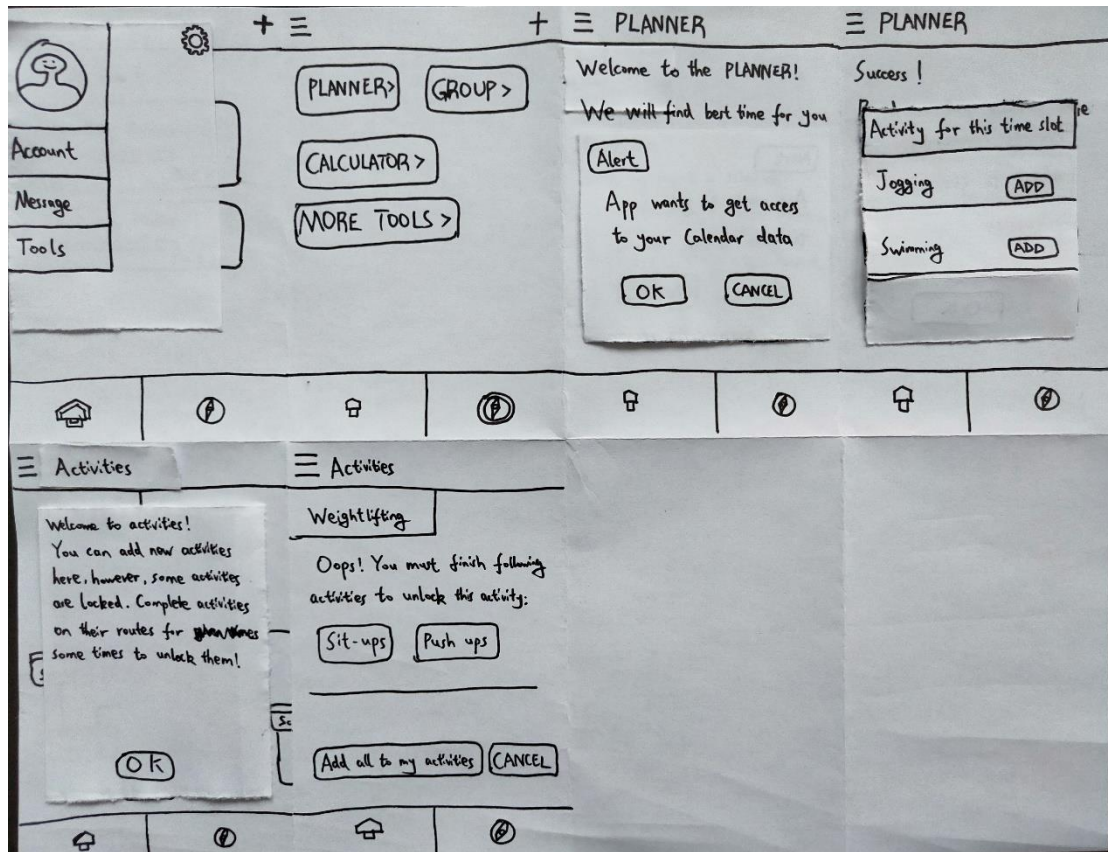 Account
Message
Tools
+
PLANNER>
GROUP >
CALCULATOR >
MORE TOOLS >
+
PLANNER
Welcome to the PLANNER!
We will find best time for you
Alert
App wants to get access
to your Calendar data
OK
CANCEL
PLANNER
Success!
Activity for this time slot
Jogging
ADD
Swimming
ADD
Activities
Welcome to activities!
You can add new activities
here, however, some activites
are locked. Complete activities
on their routes for
some times to unlock them!
OK
Activities
Weightlifting
Oops! You must finish following
activities to unlock this activity:
Sit-ups
Push ups
Add all to my activities
CANCEL